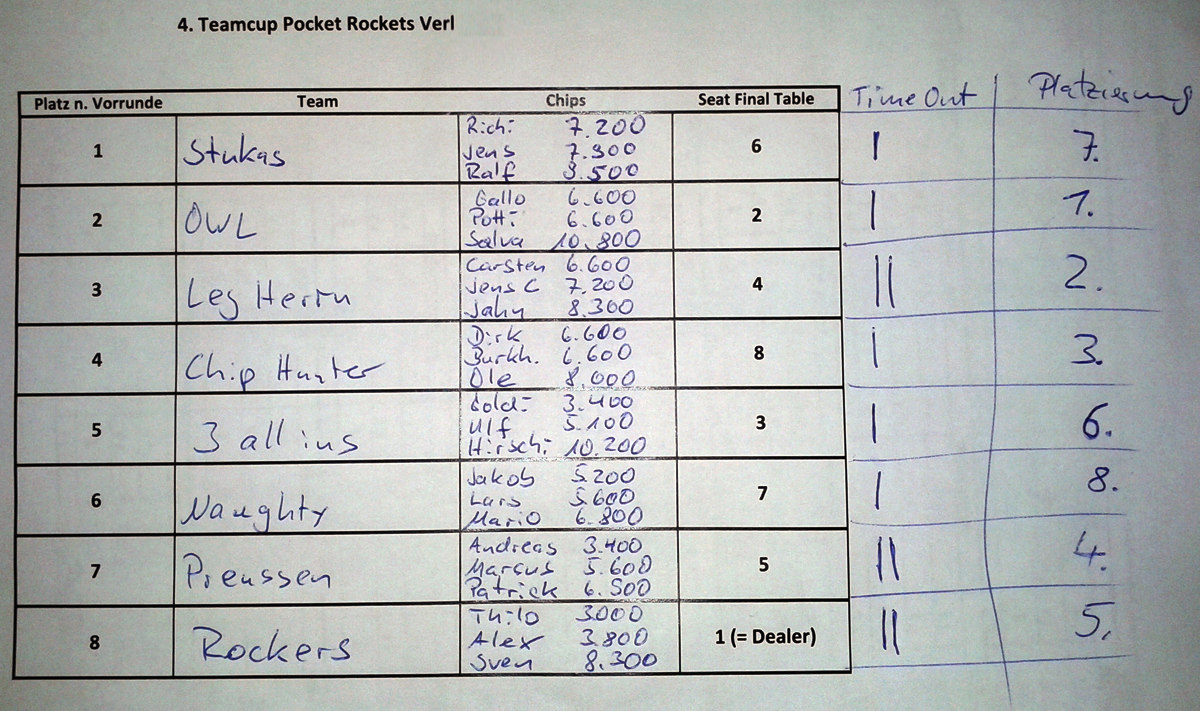 4. Teamcup Pocket Rockets Verl
Platz n. Vorrunde Team Chips Seat Final Table Time Out Platzierung
1 Stukas 6 | 7.
Richi 7.200
Jens 7.300
Ralf 9.500
2 OWL 2 | 1.
Gallo 6.600
Potti 6.600
Salva 10.800
3 Leg Herrn 4 || 2.
Carsten 6.600
Jens C 7.200
Jahn 8.300
4 Chip Hunter 8 | 3.
Dirk 6.600
Burkh. 6.600
Ole 8.000
5 3 all ins 3 | 6.
Goldi 3.400
Ulf 5.100
Hirschi 10.200
6 Naughty 7 | 8.
Jakob 5.200
Lars 5.600
Mario 6.800
7 Preussen 5 || 4.
Andreas 3.400
Marcus 5.600
Patrick 6.500
8 Rockers 1 (= Dealer) || 5.
Thilo 3.000
Alex 3.800
Sven 8.300